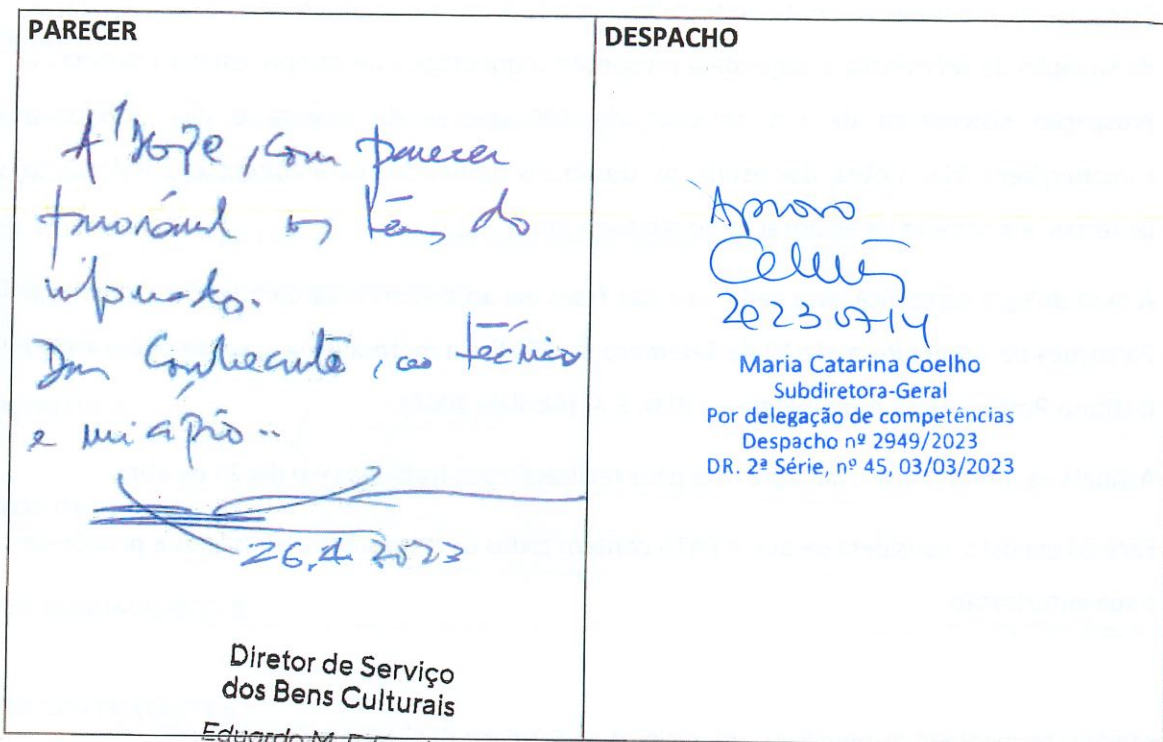 PARECER
À DGPC, com parecer
favorável nos termos da
informação.
Dar conhecimento, ao técnico
e município.
26.4.2023
Diretor de Serviço
dos Bens Culturais
Eduardo M.
DESPACHO
Aprovo
20230714
Maria Catarina Coelho
Subdiretora-Geral
Por delegação de competências
Despacho nº 2949/2023
DR. 2ª Série, nº 45, 03/03/2023